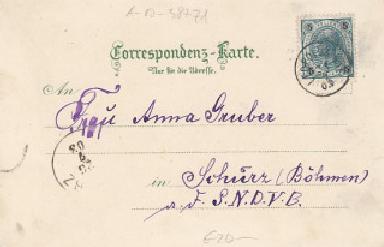 A-D-3872d
5 5
Correspondenz-Karte.
Nur für die Adresse.
An
Frau Anna Gruber
in Schürz (Böhmen)
a. d. S.N.D.V.B.